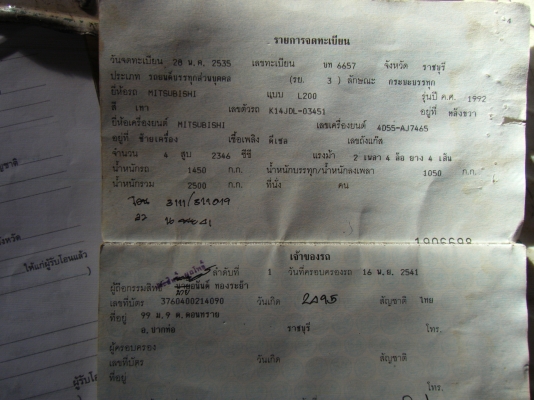 รายการจดทะเบียน
วันจดทะเบียน 28 ม.ค. 2535 เลขทะเบียน บท 6657 จังหวัด ราชบุรี
ประเภท รถยนต์บรรทุกส่วนบุคคล (รย. 3 ) ลักษณะ กระบะบรรทุก
ยี่ห้อรถ MITSUBISHI แบบ L200 รุ่นปี ค.ศ. 1992
สี เทา เลขตัวรถ K14JDL-03451 อยู่ที่ หลังขวา
ยี่ห้อเครื่องยนต์ MITSUBISHI เลขเครื่องยนต์ 4D55-AJ7465
อยู่ที่ ซ้ายเครื่อง เชื้อเพลิง ดีเซล เลขถังแก๊ส
จำนวน 4 สูบ 2346 ซีซี แรงม้า 2 เพลา 4 ล้อ ยาง 4 เส้น
น้ำหนักรถ 1450 ก.ก. น้ำหนักบรรทุก/น้ำหนักลงเพลา 1050 ก.ก.
น้ำหนักรวม 2500 ก.ก. ที่นั่ง คน
1906698
เจ้าของรถ
ลำดับที่ 1 วันที่ครอบครองรถ 16 พ.ย. 2541
ผู้ถือกรรมสิทธิ์ นายอนันต์ ทองระย้า
เลขที่บัตร 3760400214090 วันเกิด 2495 สัญชาติ ไทย
ที่อยู่ 99 ม.9 ต.ดอนทราย
อ.ปากท่อ ราชบุรี โทร.
ผู้ครอบครอง
เลขที่บัตร วันเกิด สัญชาติ
ที่อยู่
โทร.
ให้แก่ผู้รับโอนแล้ว